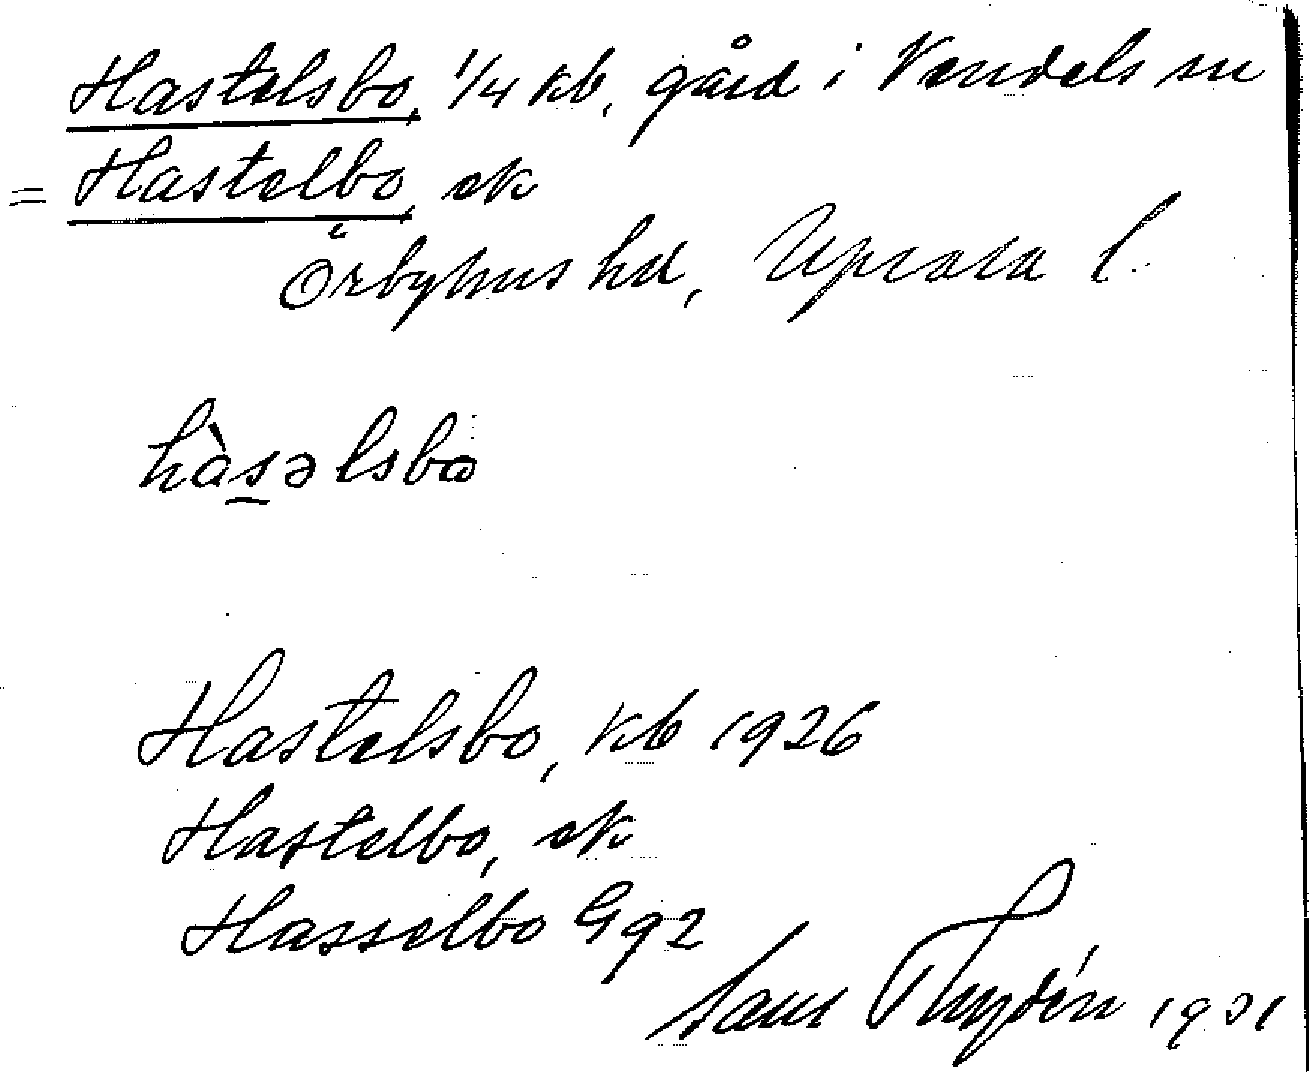 Hastelsbo, 1/4 kb, gård i Vendels sn
= Hastelbo, ek
Örbyhus hd, Upsala l.
hàsəlsbo
Hastelsbo, kb 1926
Hastelbo, ek
Hasselbo Gg2
1931